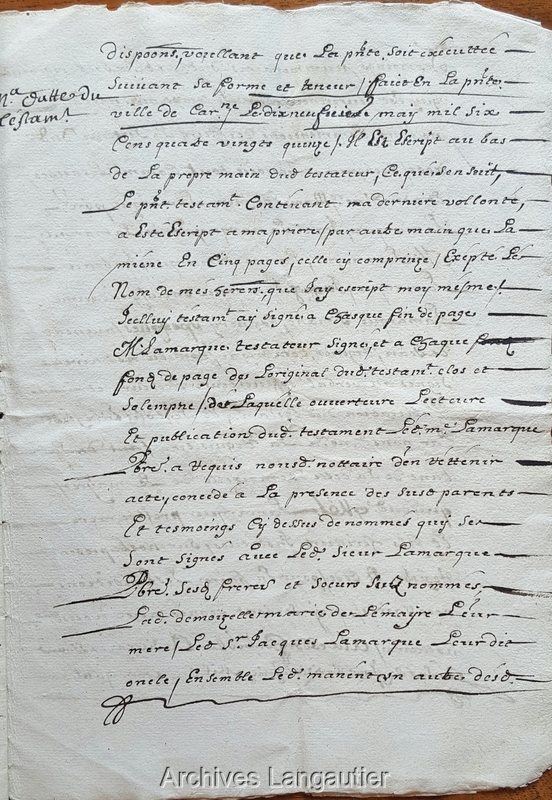 dispoõns, voullant que La pñte soit exécuttée
suivant sa forme et teneur / faict En la pñte
Nª datte du
testamᵗ
ville de Carⁿᵉ Le dixneufviele may mil six
Cens quatre vingts quinze / Il Est Escript au bas
de La propre main dud testateur, Ce qui s'en suit,
Le pñt testamᵗ. Contenant ma derniere vollonté,
a Este Escript a ma priere / par autre main que La
miene En Cinq pages, celle cy comprinze / Exepté Le
Nom de mes herers, que Jay escript moy mesme /
Icelluy testamᵗ ay signé a Chasque fin de page
M Lamarque testateur signé, et a Chaque
fond de page de Loriginal dud. testamᵗ. clos et
Solempne / de Laquelle ouverteure Lecteure
Et publication dud. testament Led. mᵉ. Lamarque
Pbrᵉ. a requis nousd. nottaire d'en rettenir
acte, concede a La presence des susd parents
Et tesmoings Cy dessus denommes quy se
sont signés avec Led. sieur Lamarque
Pbrᵉ. Sesd freres et soeurs susd nommés,
Lad. demoizelle marie de Lemayre Leur
mere / Led Sʳ Jacques Lamarque Leur dit
oncle / Ensemble Led. manent un autre desd.
Archives Langautier